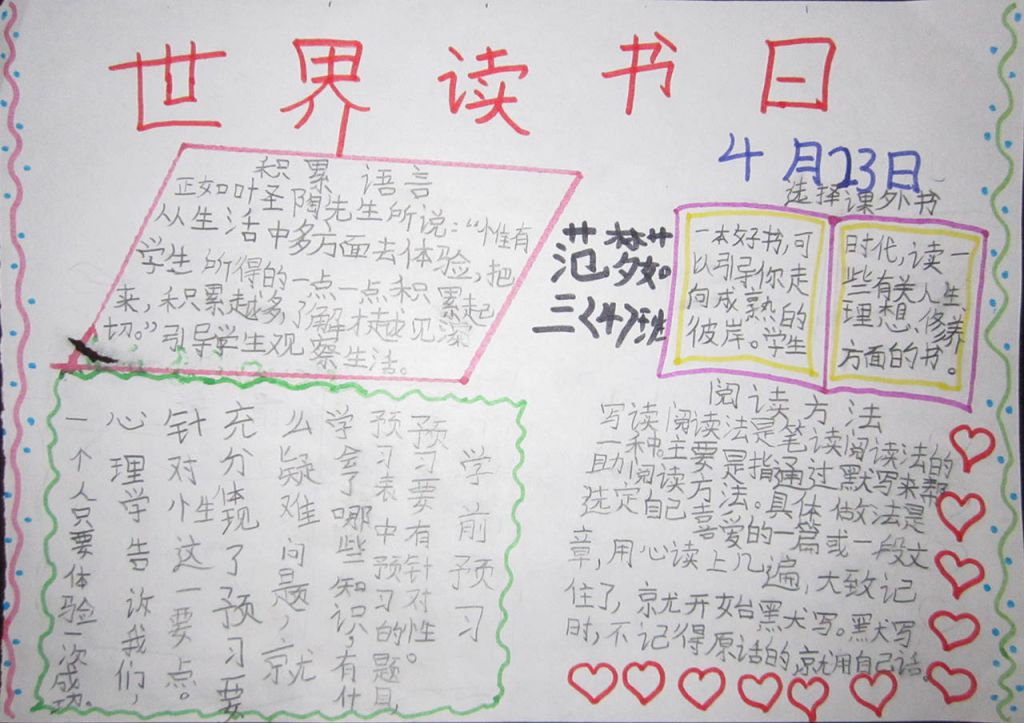 世界读书日
4月23日
积累语言
正如叶圣陶先生所说：“惟有
从生活中多方面去体验，把
学生所得的一点一点积累起
来，积累越多，了解才越见深
切。”引导学生观察生活。
范梦
三〈4〉班
选择课外书
一本好书，可
以引导你走
向成熟的
彼岸。学生
时代，读一
些有关人生
理想、修养
方面的书。
学前预习
预习要有针对性。
预习表中预习的题目，
学会了哪些知识，有什
么疑难问题，就
充分体现了预习要
针对性这一要点。
心理学告诉我们，
一个人只要体验一次成功。
阅读方法
写读阅读法是笔读阅读法的
一种。主要是指通过默写来帮
助阅读方法。具体做法是
选定自己喜爱的一篇或一段文
章，用心读上几遍，大致记
住了，就开始默写。默写
时，不记得原话的，就用自己话。